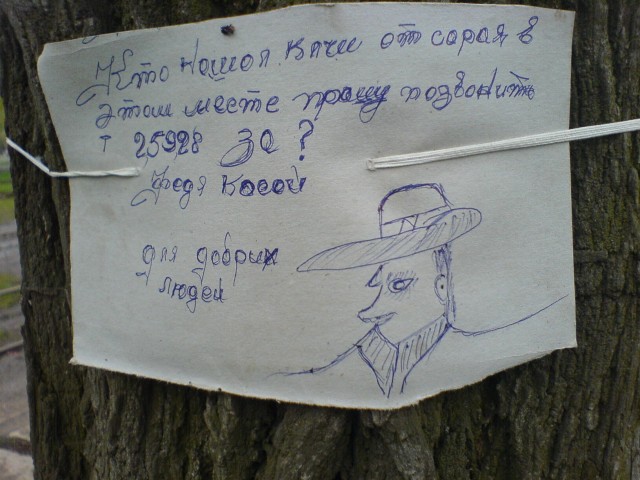 Кто нашол кючи от сарая в
этом месте прошу позвонить
т 25928 за ?
Федя Косой
для добрих
людей